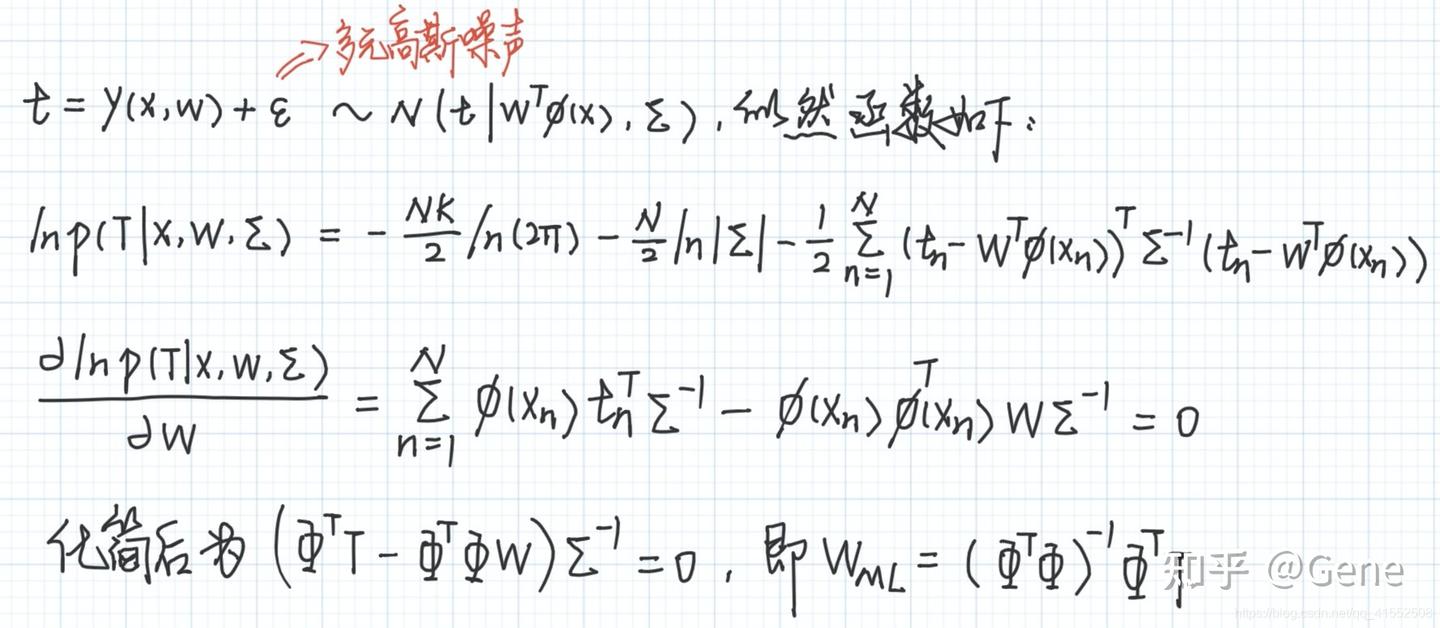 ⇒多元高斯噪声
t = y(x,w) + ε ~ N(t|Wᵀφ(x), Σ), 似然函数如下:
ln p(T|X,W,Σ) = - NK/2 ln(2π) - N/2 ln|Σ| - 1/2 Σₙ₌₁ᴺ (tₙ - Wᵀφ(xₙ))ᵀ Σ⁻¹ (tₙ - Wᵀφ(xₙ))
∂ln p(T|X,W,Σ)/∂W = Σₙ₌₁ᴺ φ(xₙ) tₙᵀ Σ⁻¹ - φ(xₙ) φ(xₙ)ᵀ W Σ⁻¹ = 0
化简后为 (ΦᵀT - ΦᵀΦW) Σ⁻¹ = 0, 即 W_ML = (ΦᵀΦ)⁻¹ΦᵀT
知乎 @Gene
https://blog.csdn.net/qq_41552508